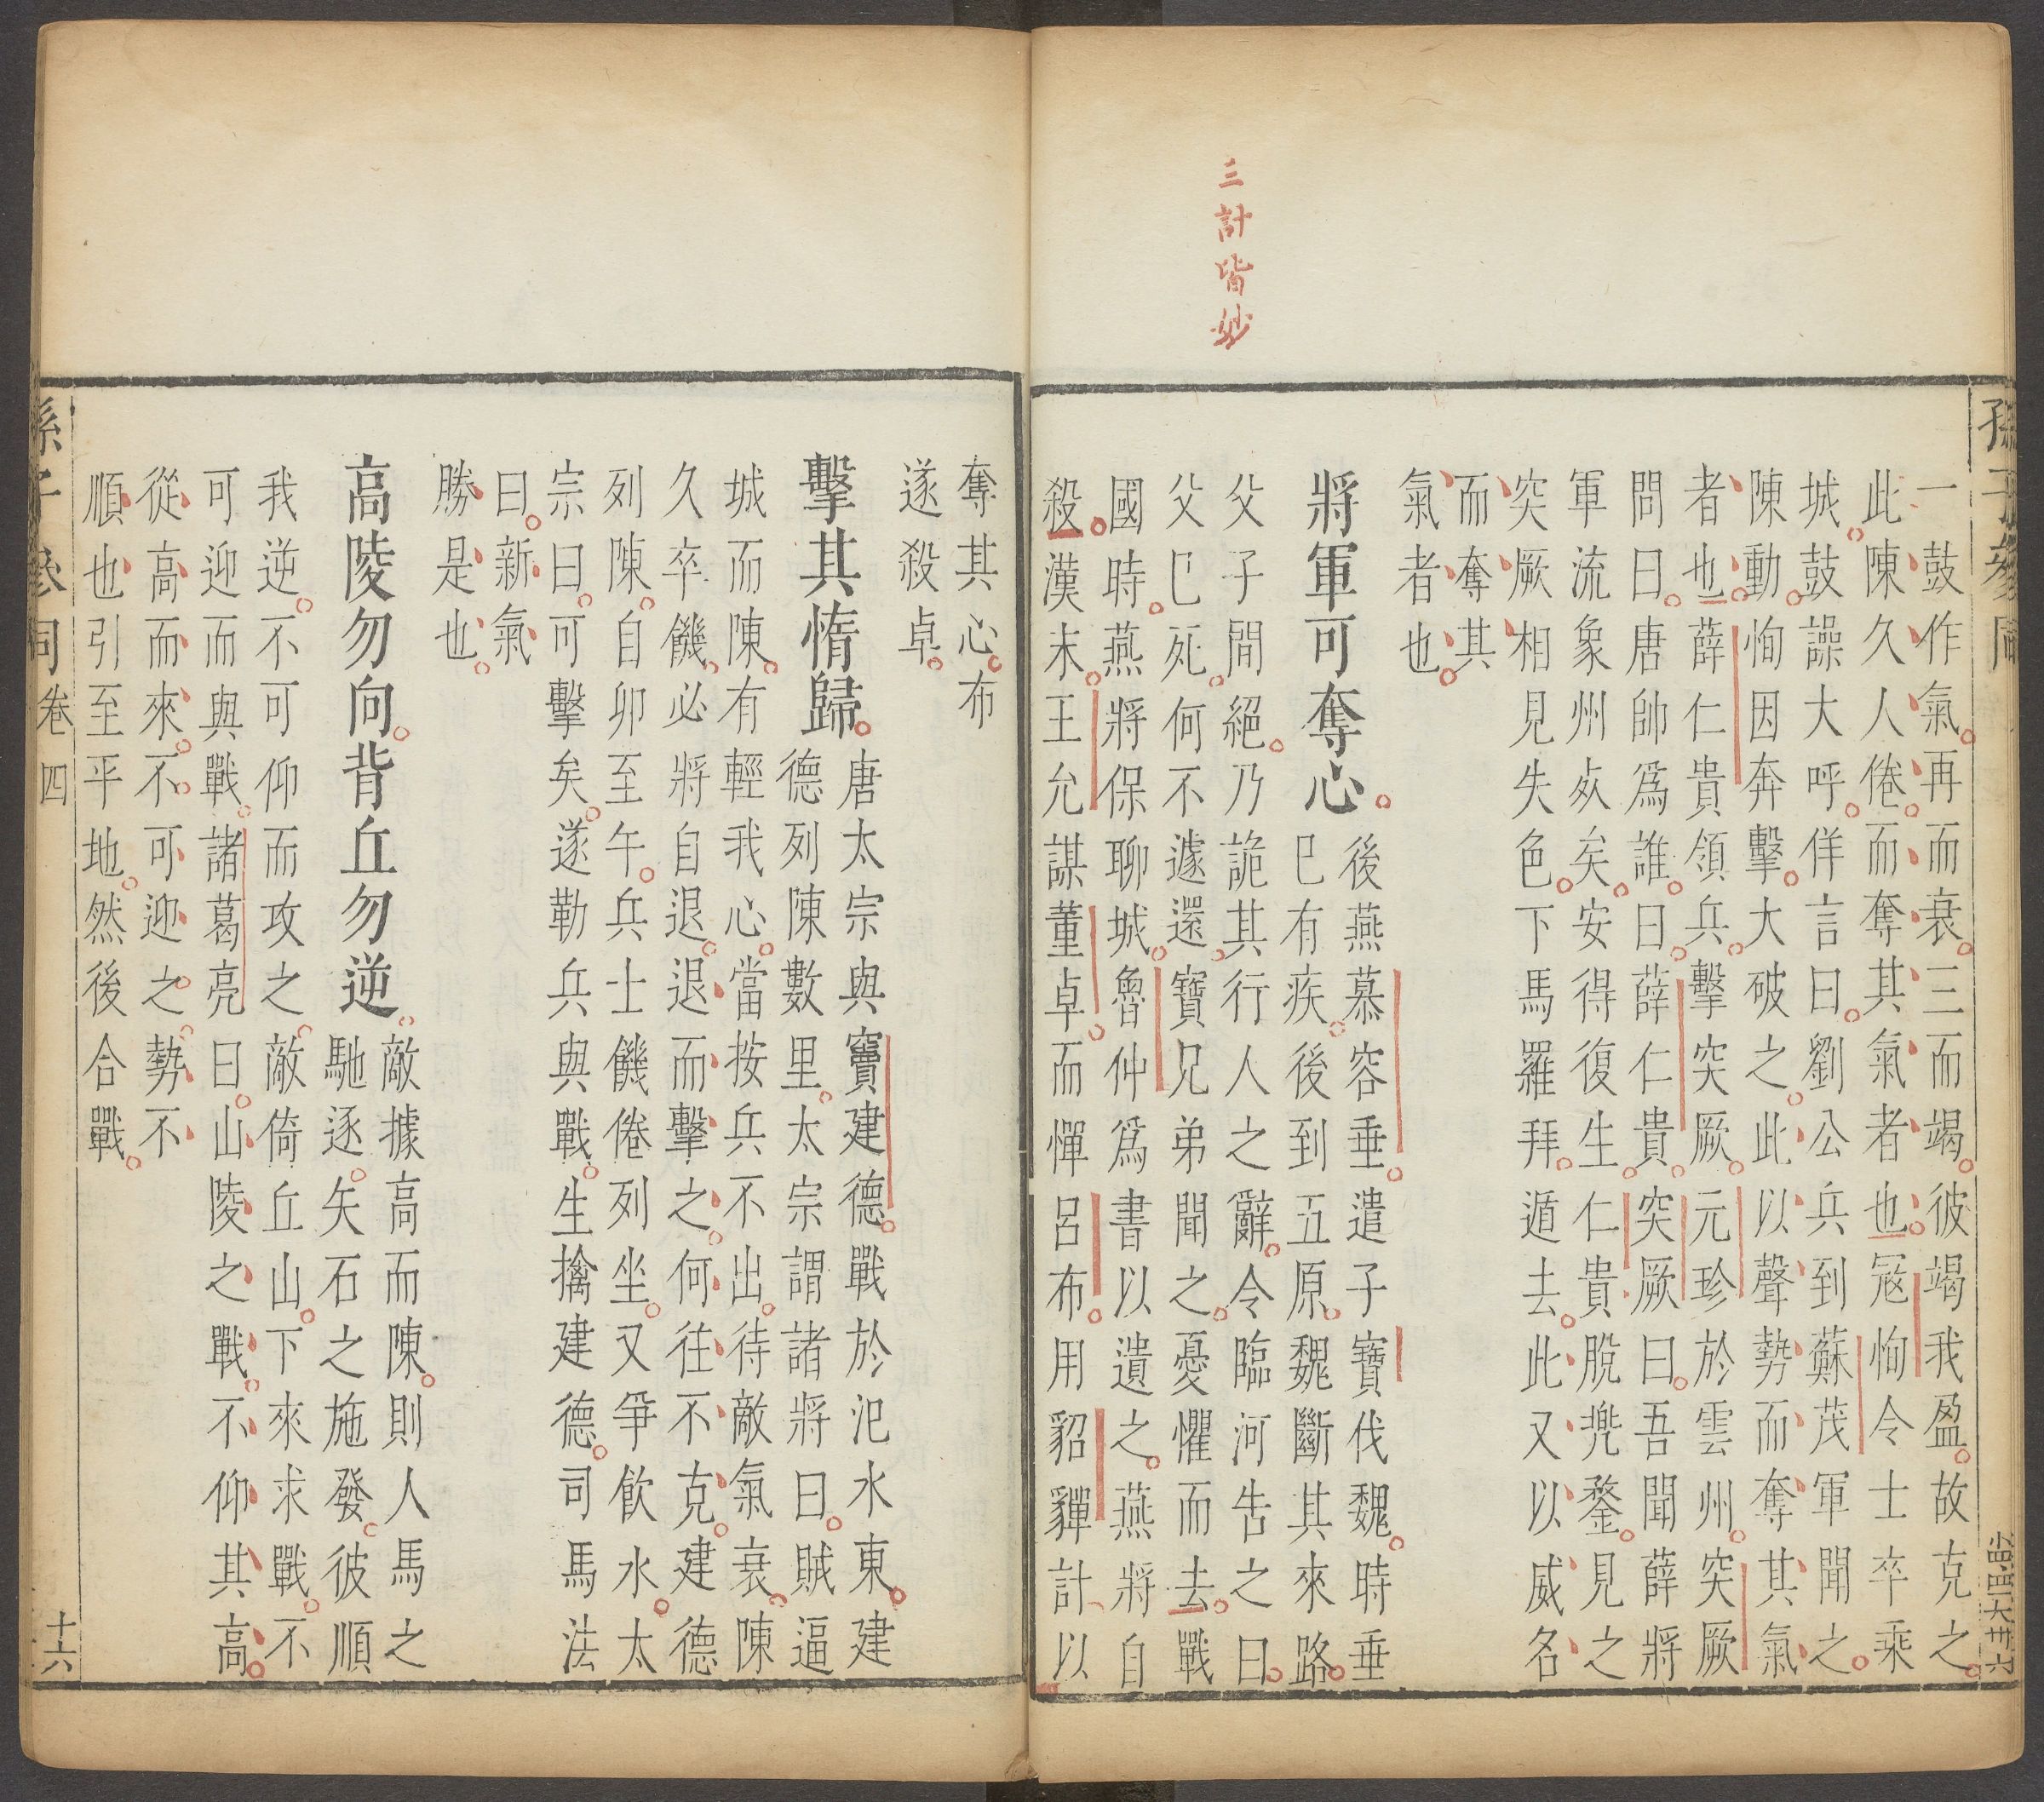 三計皆妙
孫子參同
一鼓作氣再而衰三而竭彼竭我盈故克之
此陳久人倦而奪其氣者也寇恂令士卒乘
城鼓譟大呼佯言曰劉公兵到蘇茂軍聞之
陳動恂因奔擊大破之此以聲勢而奪其氣
者也薛仁貴領兵擊突厥元珍於雲州突厥
問曰唐帥爲誰曰薛仁貴突厥曰吾聞薛將
軍流象州死矣安得復生仁貴脫兠鍪見之
突厥相見失色下馬羅拜遁去此又以威名
而奪其
氣者也
將軍可奪心
後燕慕容垂遣子寶伐魏時垂
巳有疾後到五原魏斷其來路
父子間絕乃詭其行人之辭令臨河告之曰
父巳死何不遽還寶兄弟聞之憂懼而去戰
國時燕將保聊城魯仲爲書以遺之燕將自
殺漢末王允謀董卓而憚呂布用貂蟬計以
奪其心布
遂殺卓
擊其惰歸
唐太宗與竇建德戰於汜水東建
德列陳數里太宗謂諸將曰賊逼
城而陳有輕我心當按兵不出待敵氣衰陳
久卒饑必將自退退而擊之何往不克建德
列陳自卯至午兵士饑倦列坐又爭飲水太
宗曰可擊矣遂勒兵與戰生擒建德司馬法
曰新氣
勝是也
高陵勿向背丘勿逆
敵據高而陳則人馬之
馳逐矢石之施發彼順
我逆不可仰而攻之敵倚丘山下來求戰不
可迎而與戰諸葛亮曰山陵之戰不仰其高
從高而來不可迎之勢不
順也引至平地然後合戰
孫子參同
卷四
十六